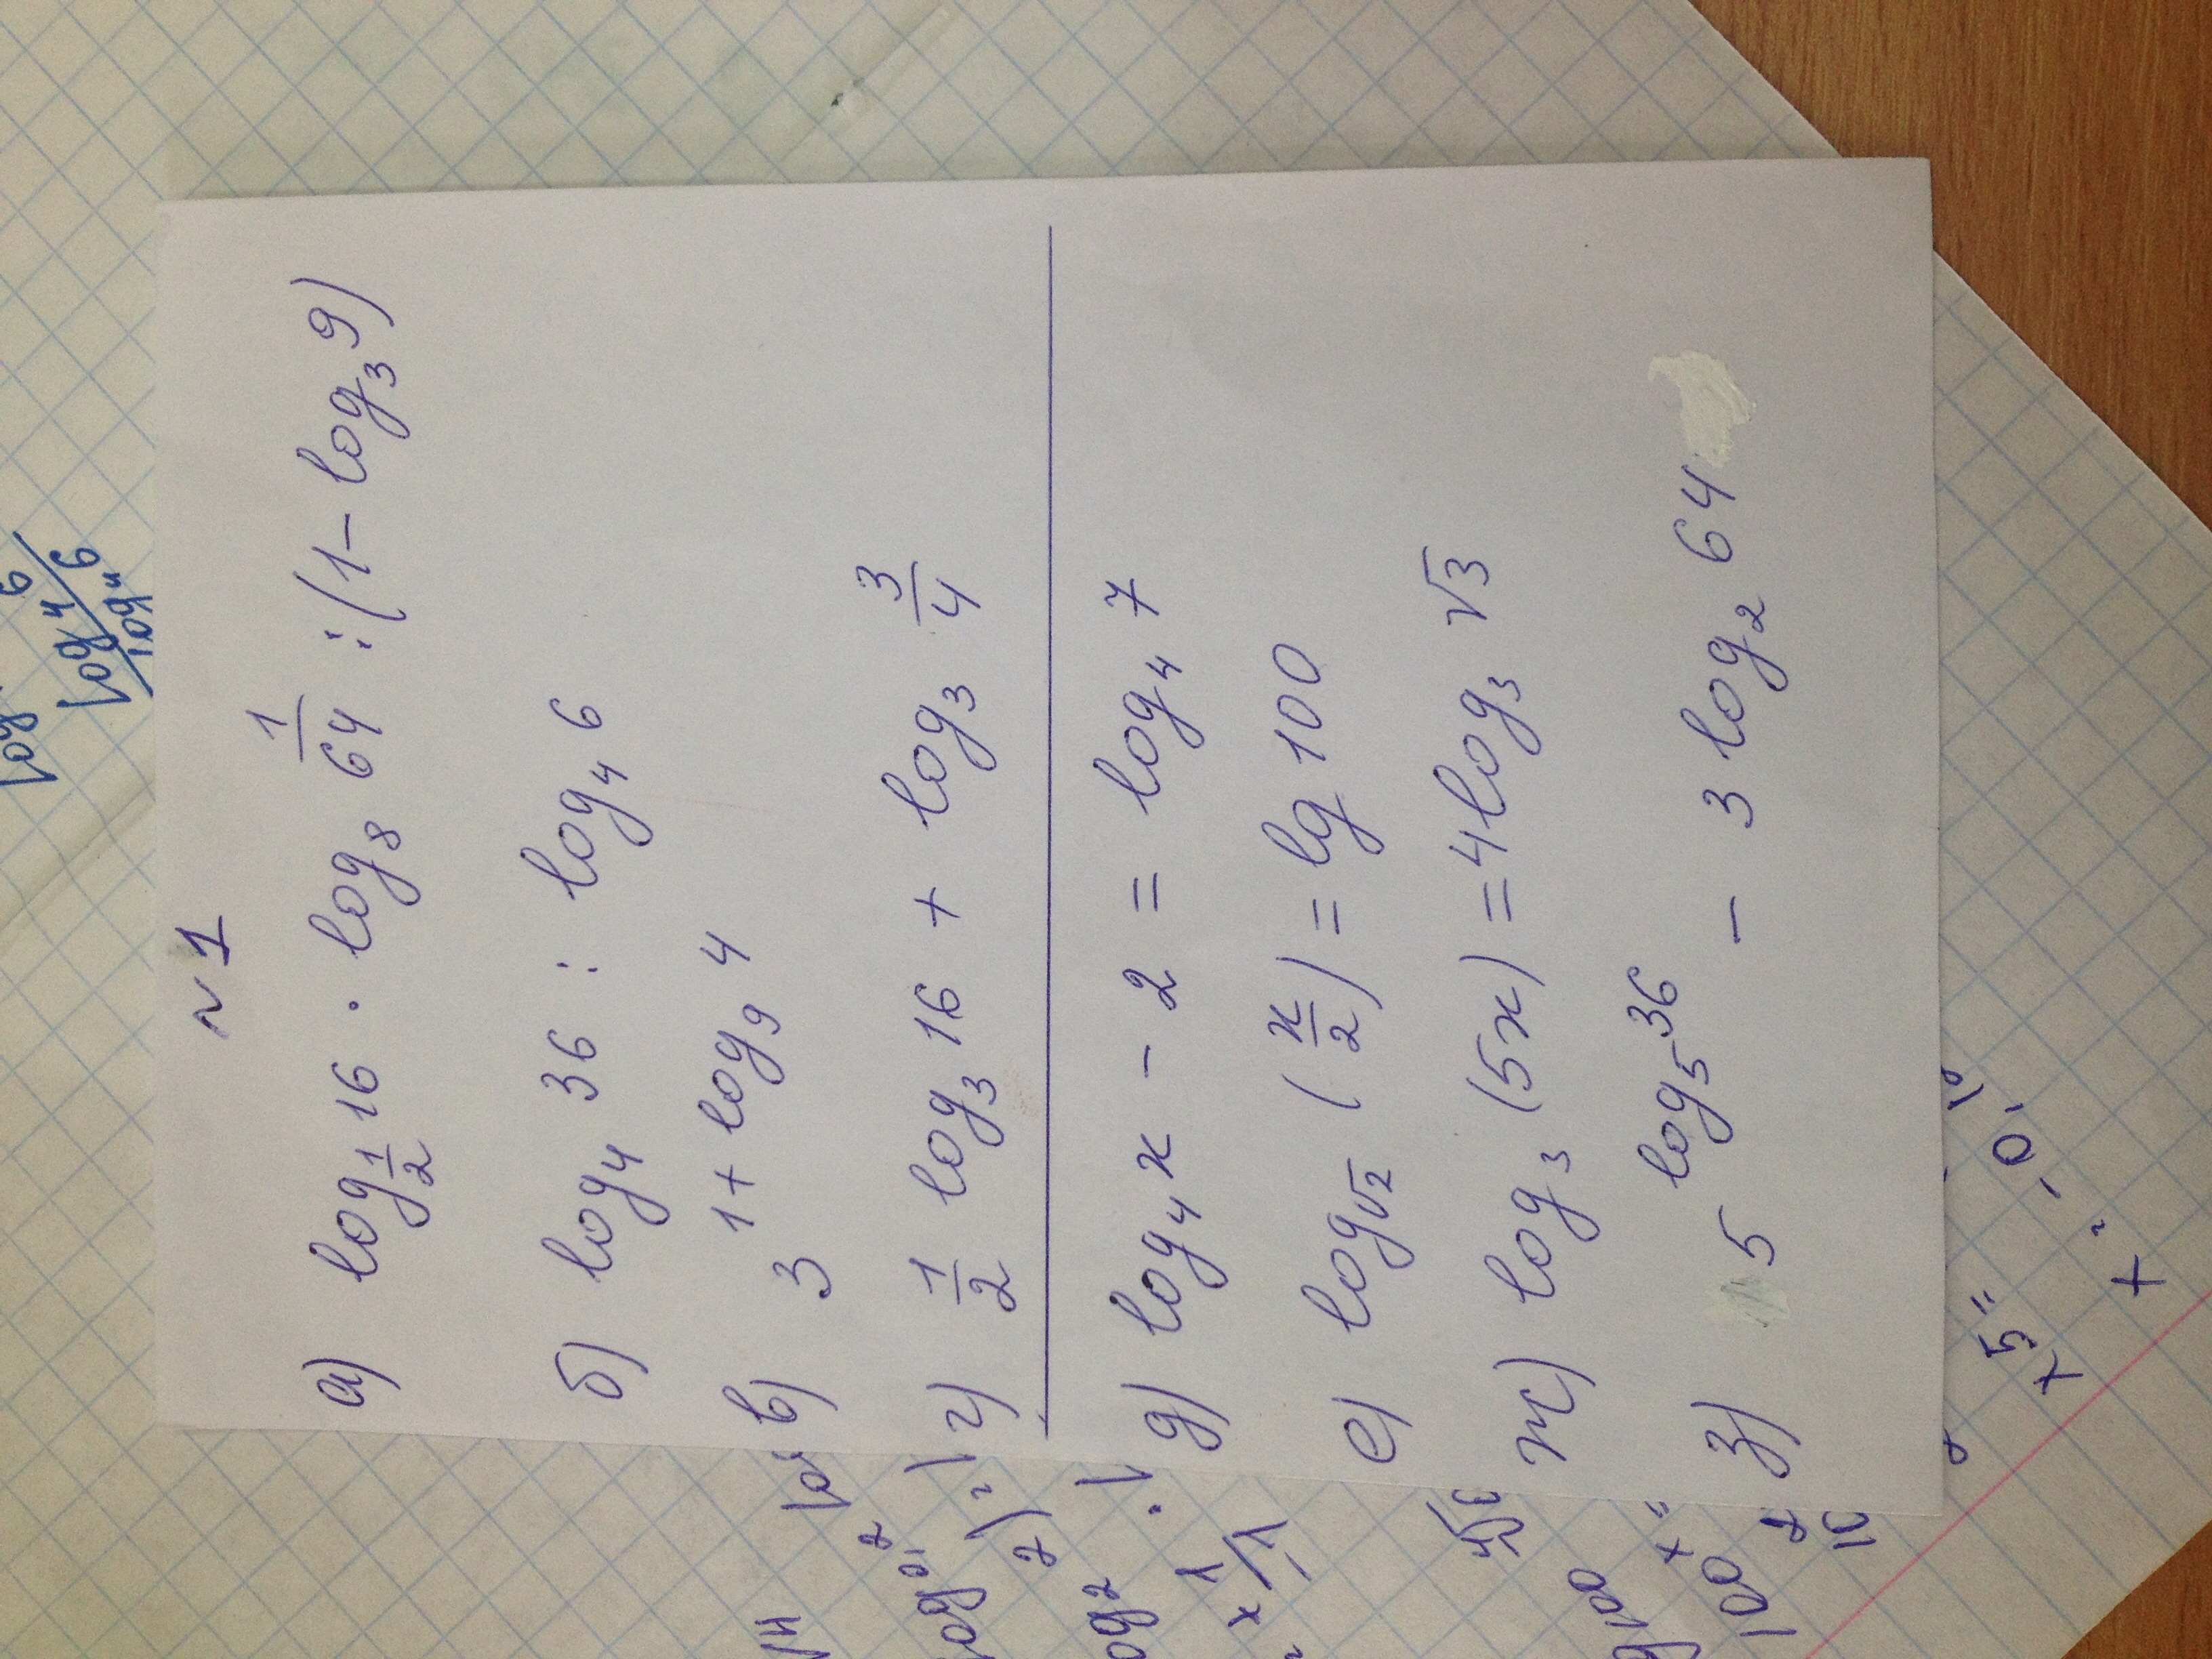 № 1
а) log_{1/2} 16 · log_8 1/64 : (1 - log_3 9)
б) log_4 36 : log_4 6
в) 3^{1 + log_9 4}
г) 1/2 log_3 16 + log_3 3/4
д) log_4 x - 2 = log_4 7
е) log_{√2} (x/2) = lg 100
ж) log_3 (5x) = 4 log_3 √3
з) 5^{log_5 36} - 3 log_2 64